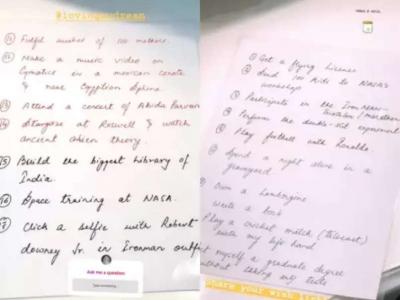 @lovingsadream
11) Fulfil wishes of 100 mothers.
12) Make a music video on
Cymatics in a mexican cenote
& near Egyptian Sphinx
13) Attend a concert of Abida Parveen
14) at Roswell & watch
ancient alien theory.
15) Build the biggest library of
India.
16) Space training at NASA.
17) Click a selfie with Robert
downey Jr. in Ironman outfit
Ask me a question
Type something...
Get a flying License
Send 100 kids to NASA's
workshop
Participate in the Ironman
Perform the double-slit experiment
Play football with Ronaldo
Spend a night alone in a
graveyard
Own a Lamborgini
Write a book
Play a cricket match (Telecast)
with my left hand
myself a graduate degree
without taking any tests
share your wish